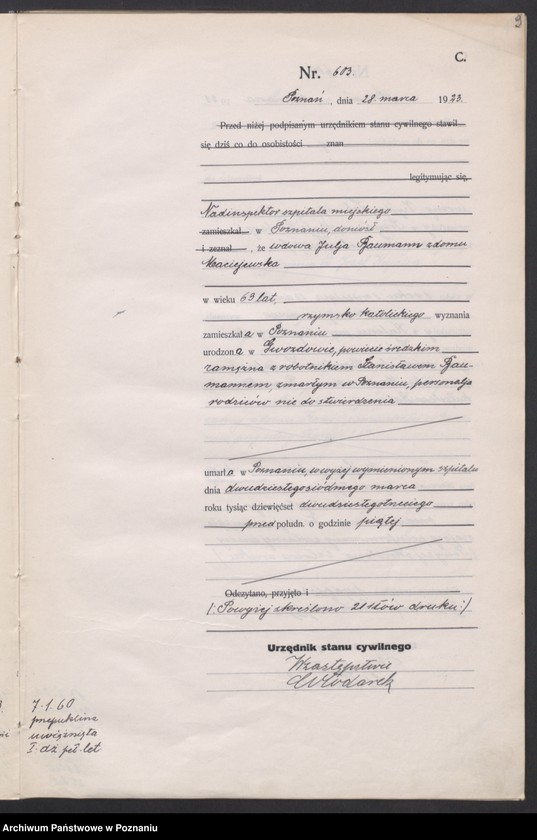 9
C.
Nr. 603.
Poznań, dnia 28. marca 1923.
Przed niżej podpisanym urzędnikiem stanu cywilnego stawił
się dziś co do osobistości znan
legitymując się,
Nadinspektor szpitala miejskiego
zamieszkał w Poznaniu, doniósł
i zeznał, że wdowa Julja Baumann z domu
Maciejewska
w wieku 63 lat,
rzymsko katolickiego wyznania
zamieszkała w Poznaniu
urodzona w Gwozdowie, powiecie średzkim
zamężna z robotnikiem Stanisławem Bau-
mannem, zmarłym w Poznaniu, personalja
rodziców nie do stwierdzenia
umarła w Poznaniu, w wyżej wymienionym szpitalu
dnia dwudziestegosiódmego marca
roku tysiąc dziewięćset dwudziestegotrzeciego
przed połudn. o godzinie piątej
Odczytano, przyjęto i
/: Powyżej skreślono 21 słów druku :/
Urzędnik stanu cywilnego
W zastępstwie
Włodarek
7.1.60
przepuklina
uwięźnięta
Archiwum Państwowe w Poznaniu